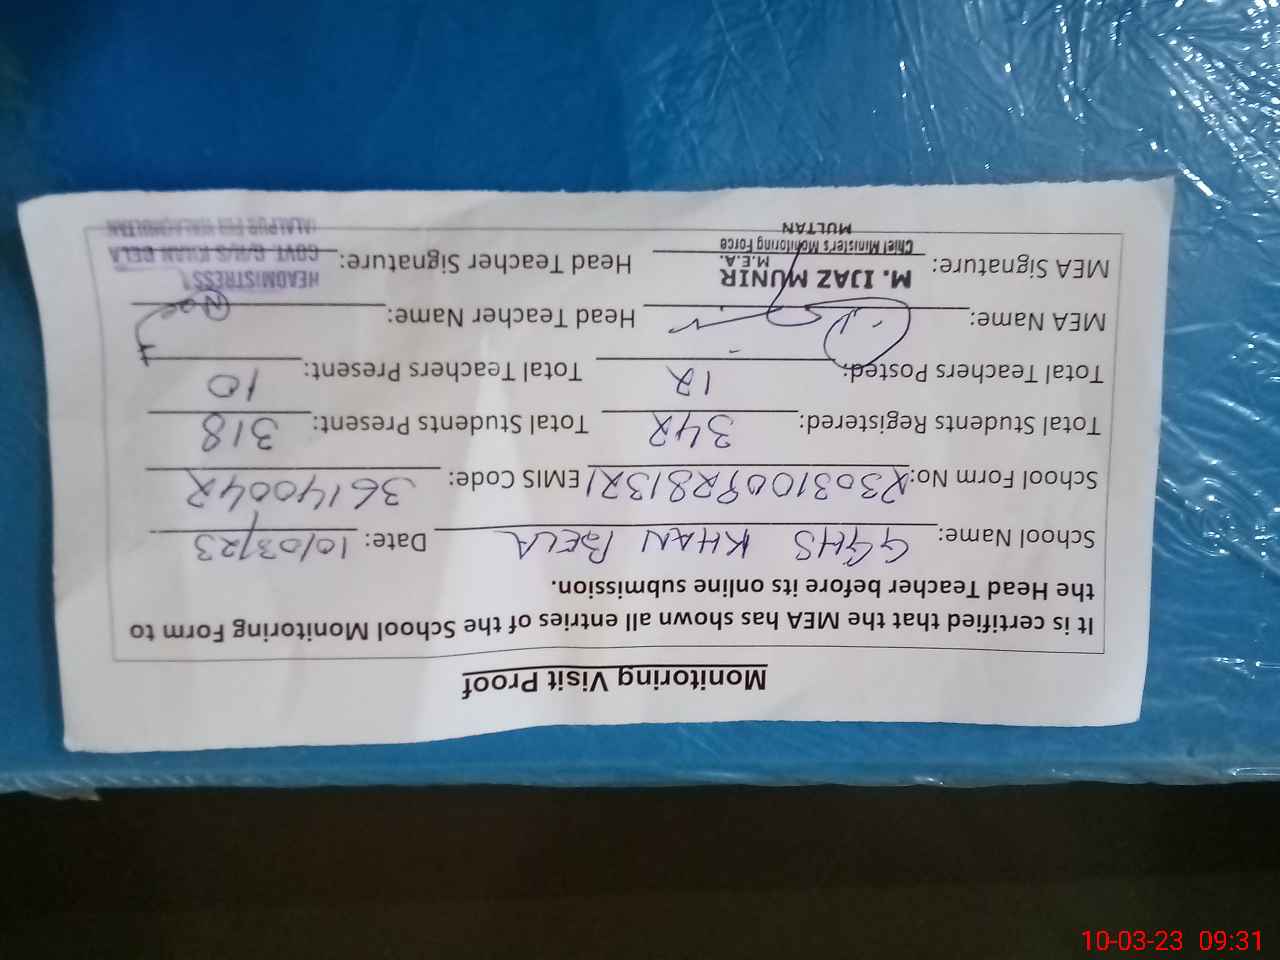 Monitoring Visit Proof
It is certified that the MEA has shown all entries of the School Monitoring Form to
the Head Teacher before its online submission.
School Name: GGHS KHAN BELA Date: 10/03/23
School Form No: 23031009281321 EMIS Code: 36140042
Total Students Registered: 342 Total Students Present: 318
Total Teachers Posted: 12 Total Teachers Present: 10
MEA Name: Head Teacher Name:
MEA Signature: Head Teacher Signature:
M. IJAZ MUNIR
M.E.A.
Chief Minister's Monitoring Force
MULTAN
HEADMISTRESS
GOVT. G/H/S KHAN BELA
JALALPUR PIR WALA(MULTAN
10-03-23 09:31